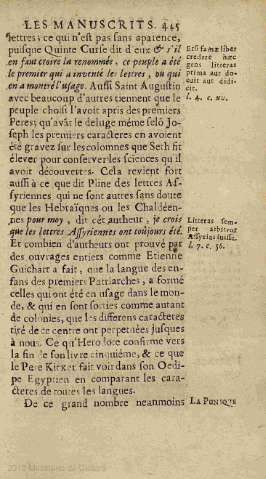 LES MANUSCRITS. 445
lettres; ce qui n'est pas sans aparence,
puisque Quinte Curse dit d'eux & s'il
en faut croire la renommée, ce peuple a été
le premier qui a inventé les lettres, ou qui
en a montré l'usage. Aussi Saint Augustin
avec beaucoup d'autres tiennent que le
peuple choisi l'avoit apris des premiers
Peres; qu'avãt le deluge même selõ Jo-
seph les premiers caracteres en avoient
été gravez sur les colomnes que Seth fit
élever pour conserver les sciences qu'il
avoit découvertes. Cela revient fort
aussi à ce que dit Pline des lettres As-
syriennes qui ne sont autres sans doute
que les Hebraïques ou les Chaldéen-
nes pour moy, dit cét autheur, je crois
que les lettres Assyriennes ont toûjours été.
Et combien d'autheurs ont prouvé par
des ouvrages entiers comme Etienne
Guichart a fait, que la langue des en-
fans des premiers Patriarches, a formé
celles qui ont été en usage dans le mon-
de, & qui en sont sorties comme autant
de colonies, que les differens caracteres
tiré de ce centre ont perpetuées jusques
à nous. Ce qu'Herodote confirme vers
la fin de son livre cinquiéme, & ce que
le Pere Kirker fait voir dans son Oedi-
pe Egyptien en comparant les cara-
cteres de toutes les langues.
De ce grand nombre neanmoins
Et si famæ liber
credere hæc
gens litteras
prima aut do-
cuit aut didi-
cit.
l. 4. c.
Litteras sem-
per arbitror
Assyrias fuisse.
l. 7. c. 56.
LA PUNIQUE